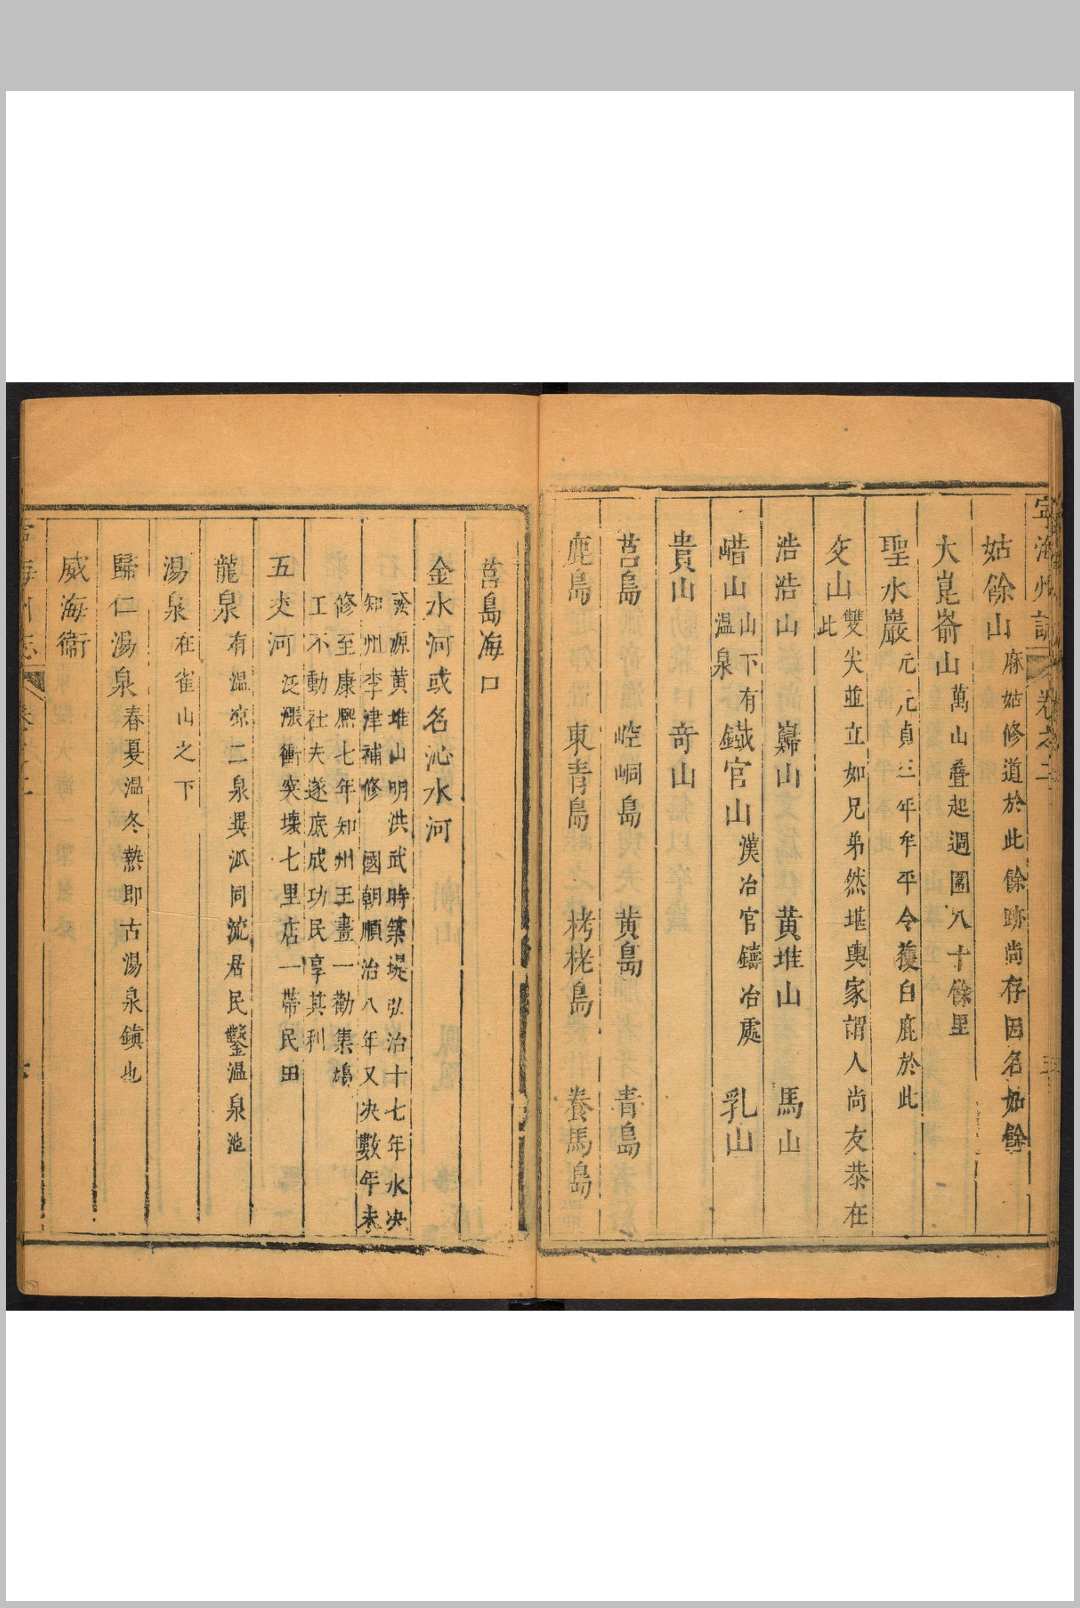 寧海州志 卷之二 五
姑餘山 麻姑修道於此餘跡尚存因名姑餘
大崑崳山 萬山疊起週圍八十餘里
聖水巖 元元貞三年牟平令獲白鹿於此
交山 雙尖並立如兄弟然堪輿家謂人尚友恭在
此
浩浩山 𡾋山 黄堆山 馬山
㟙山 山下有温泉 鐡官山 漢冶官鑄冶處 乳山
貴山 奇山
莒島 崆峒島 黄島 青島
鹿島 東青島 栲栳島 養馬島
莒島海口
金水河或名沁水河
發源黄堆山明洪武時築堤弘治十七年水决
知州李津補修 國朝順治八年又决數年未
修至康熈七年知州王畫一勸集塢
工不動社夫遂底成功民享其利
五丈河 泛漲衝突壊七里店一帶民田
龍泉 有温凉二泉異派同流居民鑿温泉池
湯泉 在雀山之下
歸仁湯泉 春夏温冬熱即古湯泉鎮也
威海衞